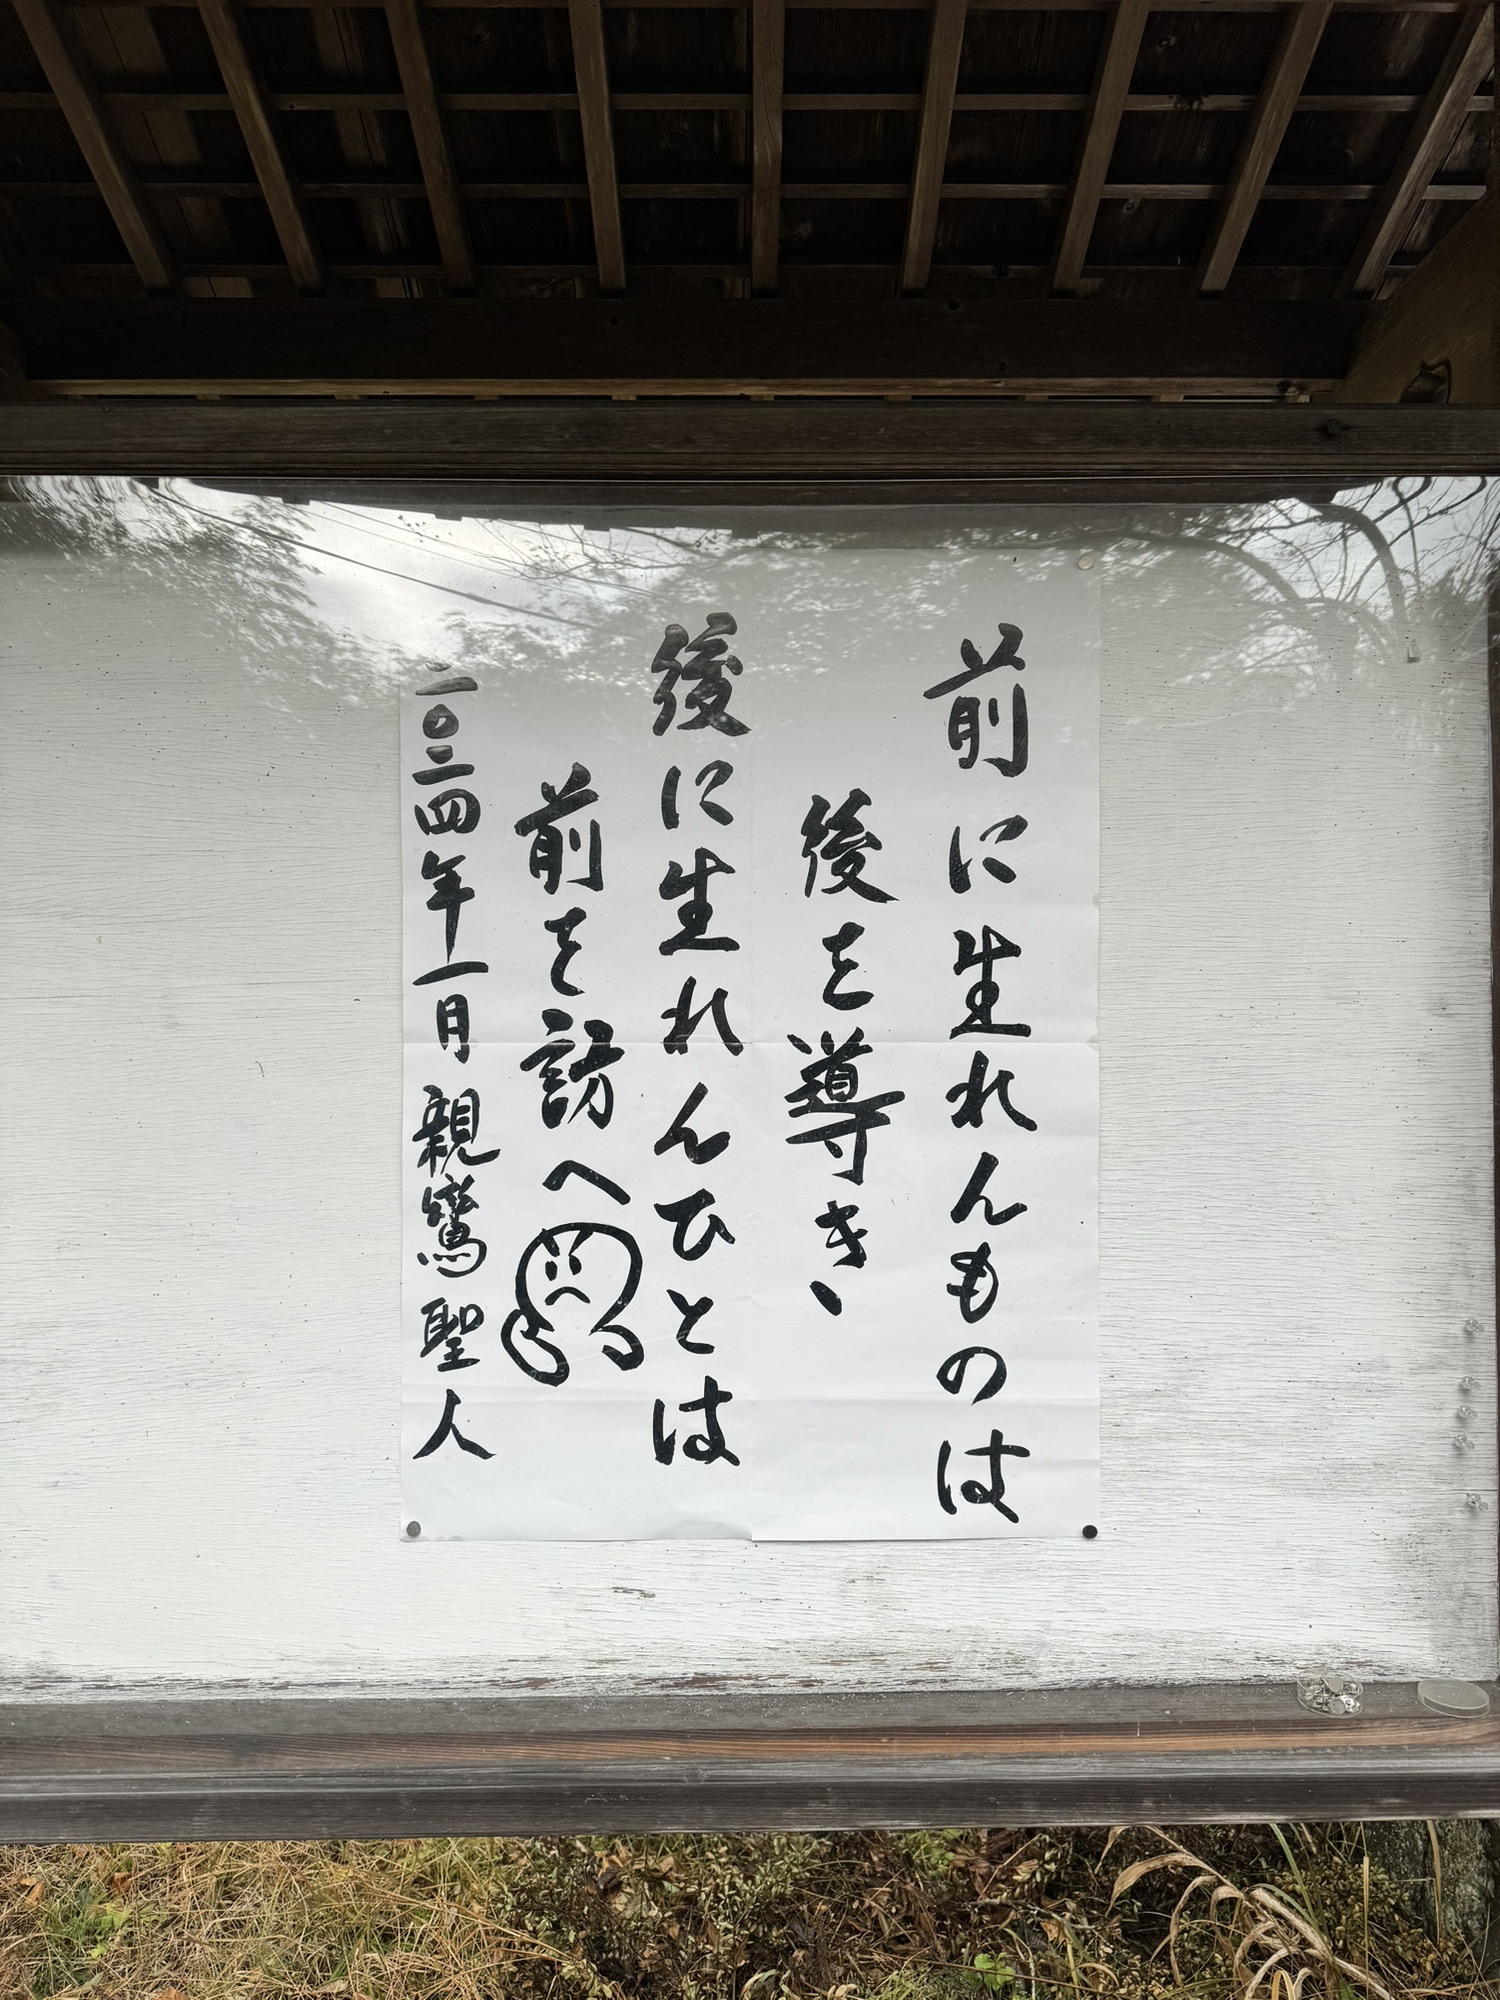 前に生れんものは
後を導き、
後に生れんひとは
前を訪へ
二〇二四年一月 親鸞聖人